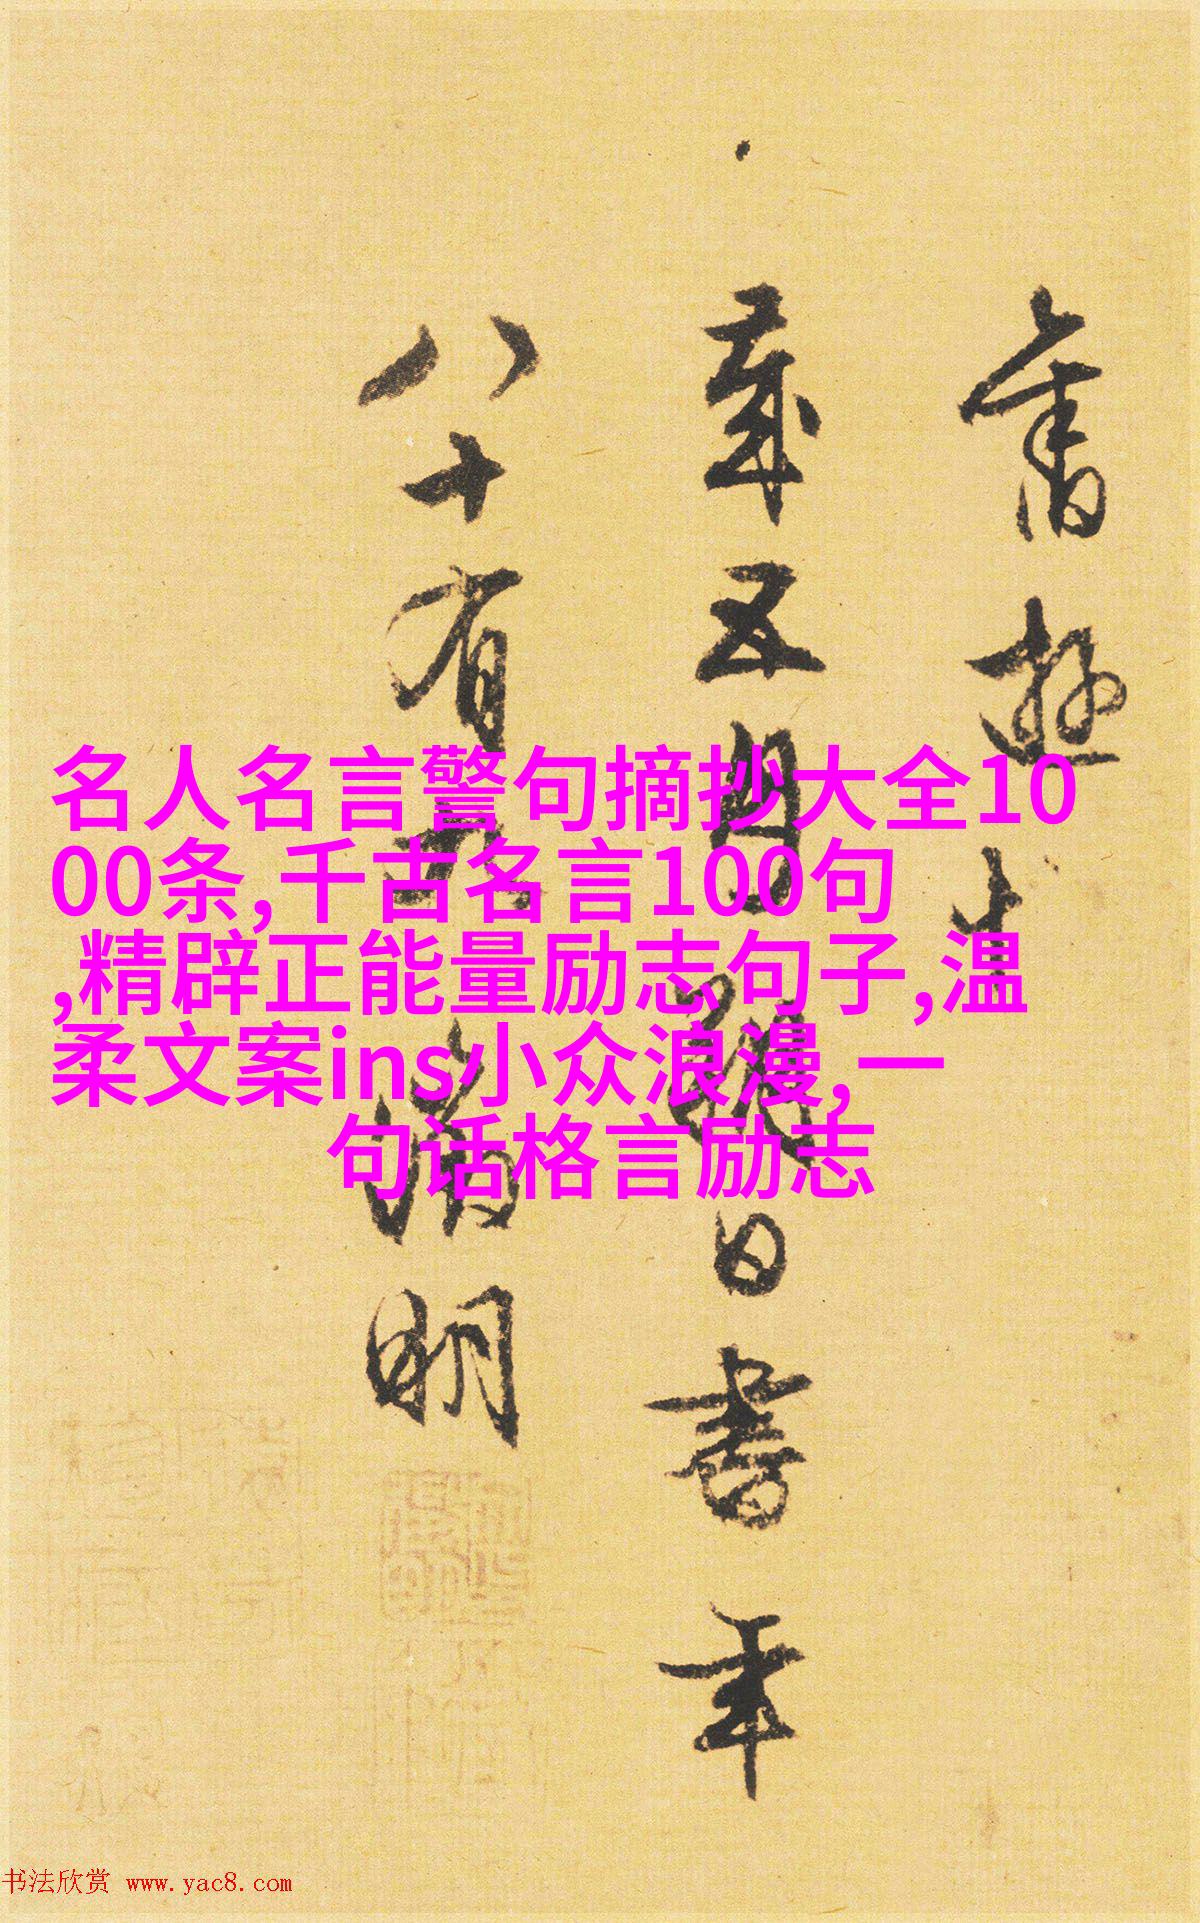 舊遊
歲五月日書年
八十有徵明
名人名言警句摘抄大全10
00条,千古名言100句
,精辟正能量励志句子,温
柔文案ins小众浪漫,一
句话格言励志
书法欣赏 www.yac8.com